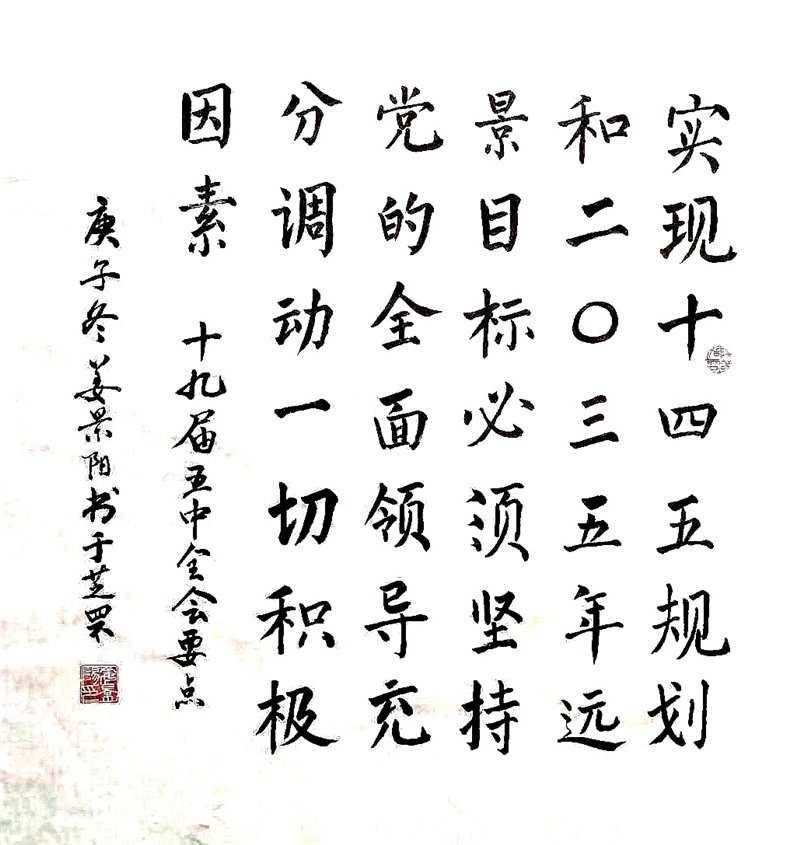 实现十四五规划
和二〇三五年远
景目标必须坚持
党的全面领导充
分调动一切积极
因素
十九届五中全会要点
庚子冬姜景阳书于芝罘